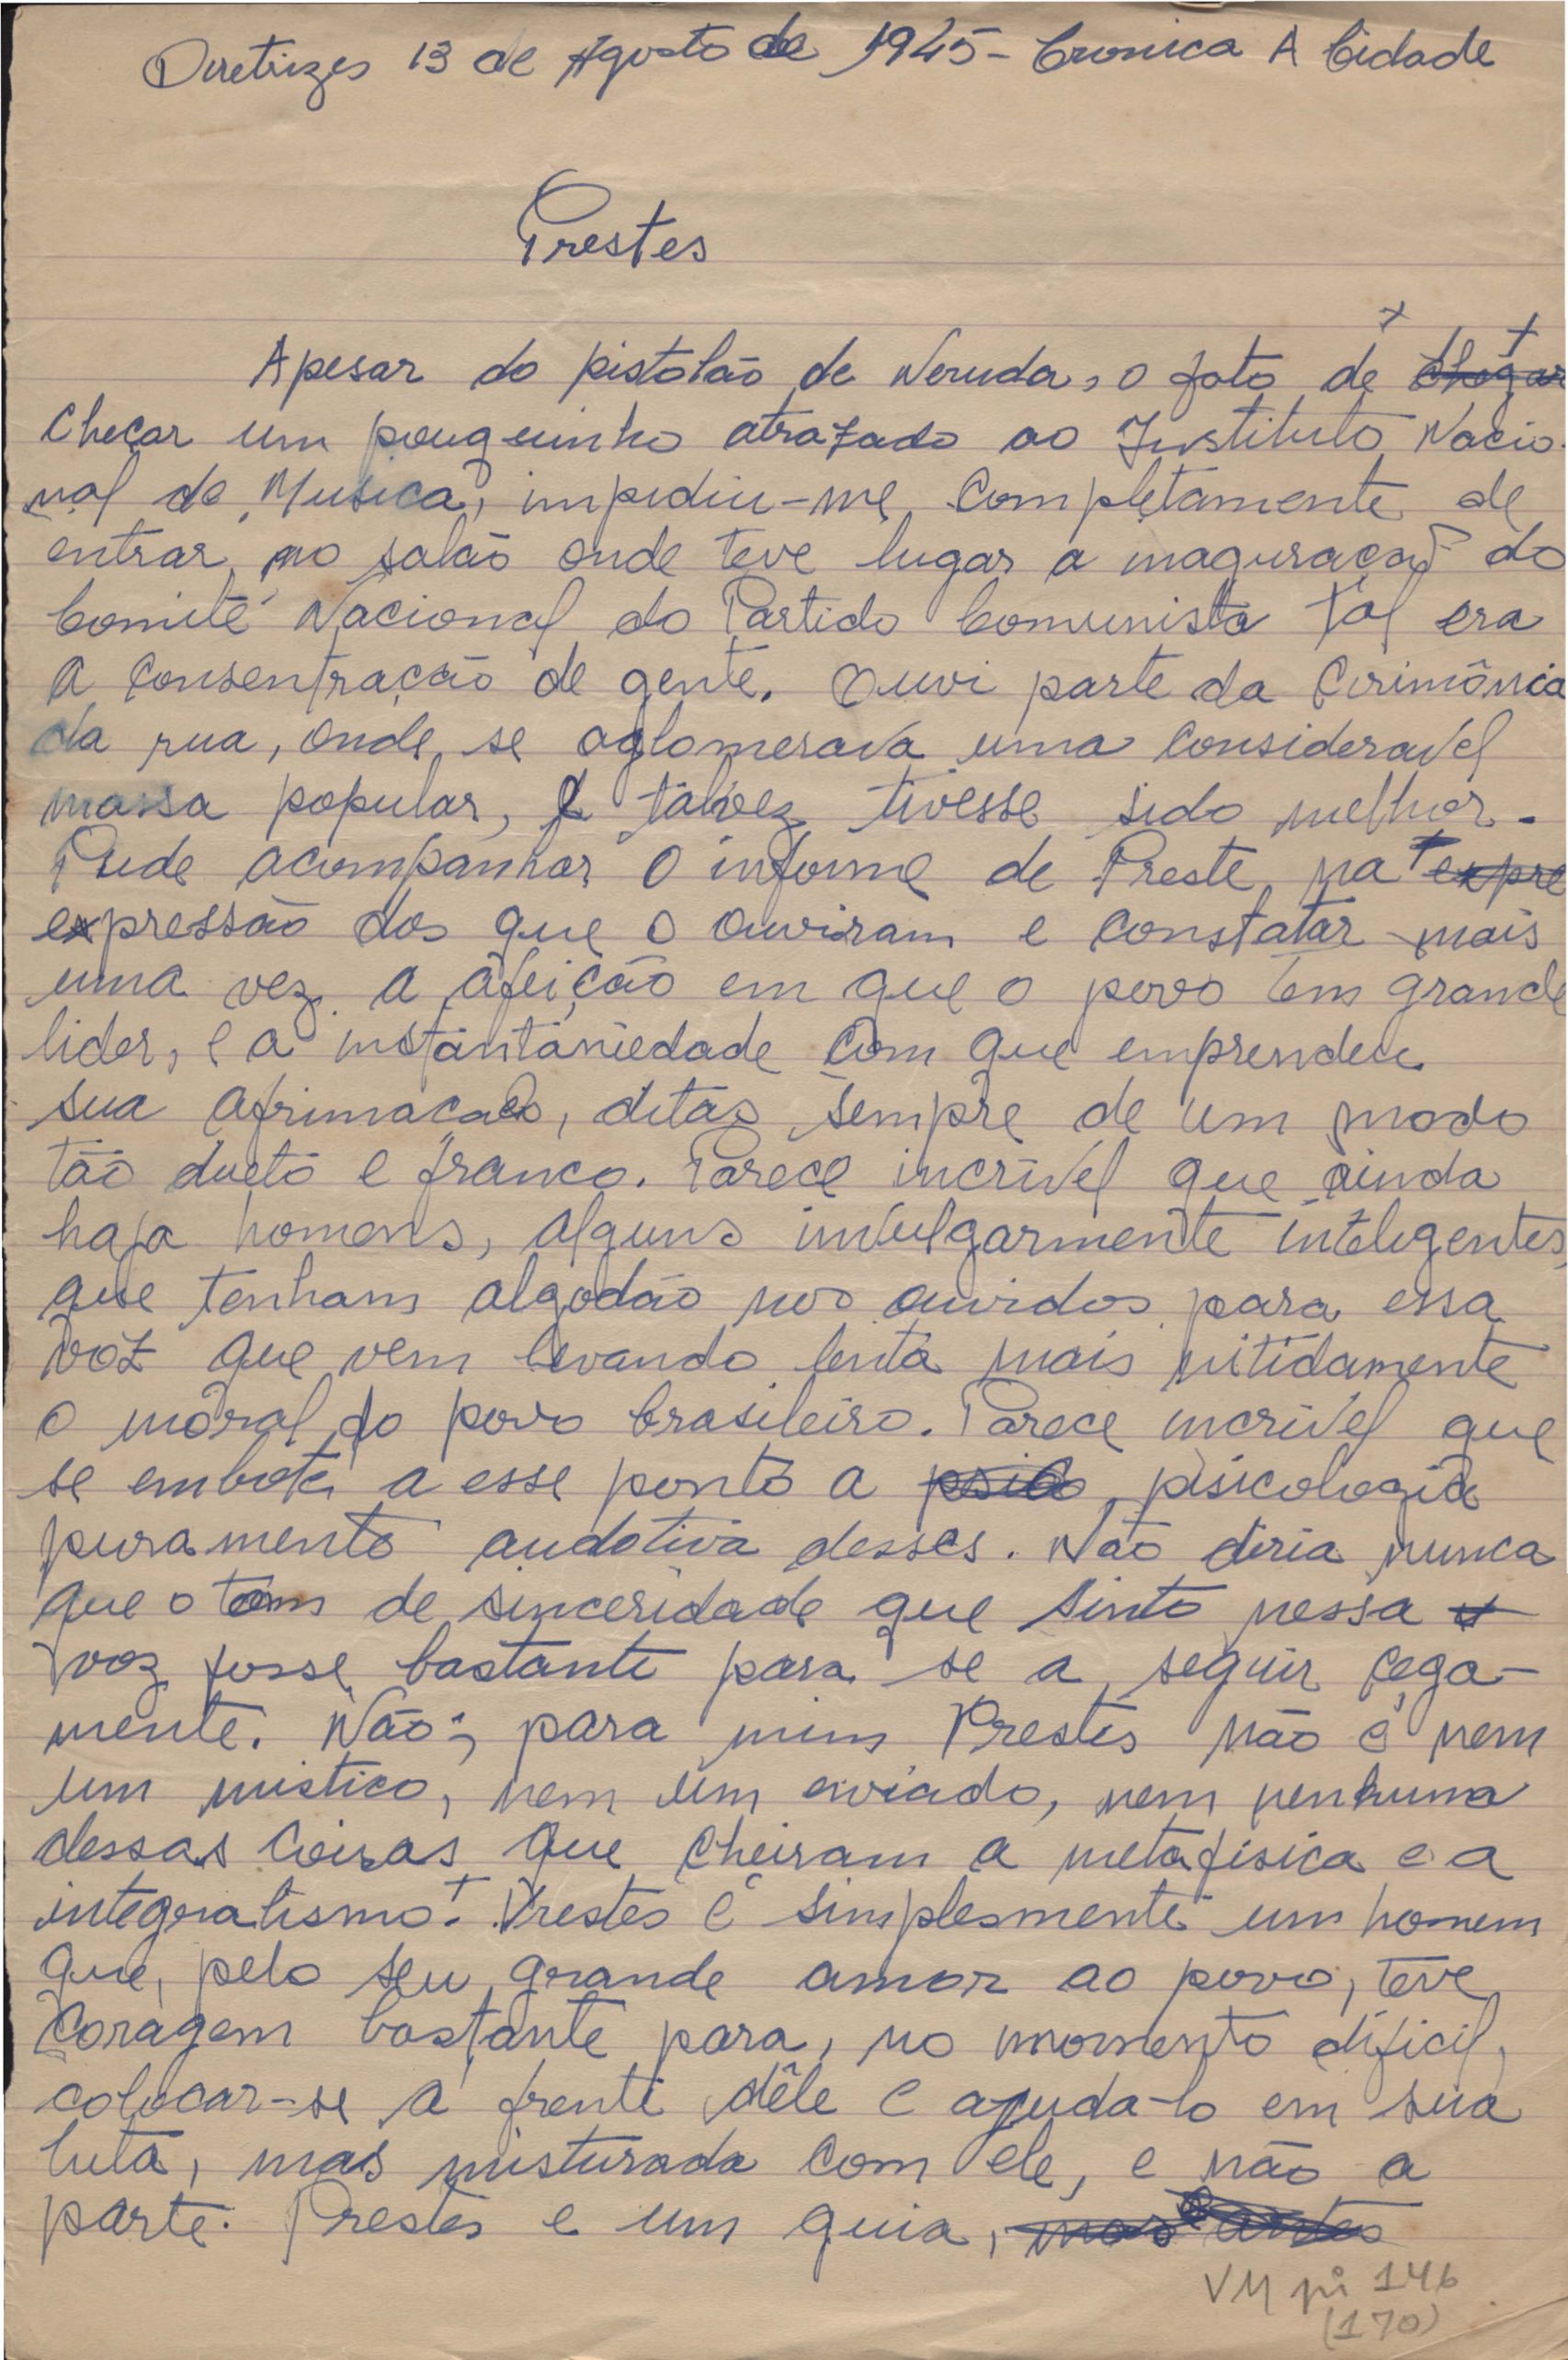 Diretrizes 13 de Agosto de 1945 - Cronica A Cidade
Prestes
Apesar do pistolão de Neruda, o fato de chegar
checar um pouquinho atrazado ao Instituto Nacio-
nal de Musica, impediu-me completamente de
entrar no salão onde teve lugar a inaguração do
Comité Nacional do Partido Comunista tal era
a consentração de gente. Ouvi parte da cirimônia
da rua, onde se aglomerava uma consideravel
massa popular, e talvez tivesse sido melhor.
Pude acompanhar o informe de Preste, na expre
expressão dos que o ouviram e constatar mais
uma vez a afeição em que o povo tem grande
lider, e a instantaniedade com que emprendeu
sua afrimacaões, ditas sempre de um modo
tão dueto e franco. Parece incrível que ainda
haja homens, alguns invulgarmente inteligentes,
que tenham algodão nos ouvidos para essa
voz que vem levando lenta mais nitidamente
o moral do povo brasileiro. Parece incrível que
se embote a esse ponto a psico psicologia
puramento audotiva desses. Não diria nunca
que o tom de sinceridade que sinto nessa v
voz fosse bastante para se a seguir cega-
mente. Não; para mim Prestes não é nem
um mistico, nem um enviado, nem nenhuma
dessas coisas que cheiram a metafisica e a
integralismo. Prestes é simplesmente um homem
que, pelo seu grande amor ao povo, teve
coragem bastante para, no momento dificil,
colocar-se a frente dêle e ajuda-lo em sua
luta, mas misturada com ele, e não a
parte. Prestes e um guia, mas antes
VM pi 146
(170)